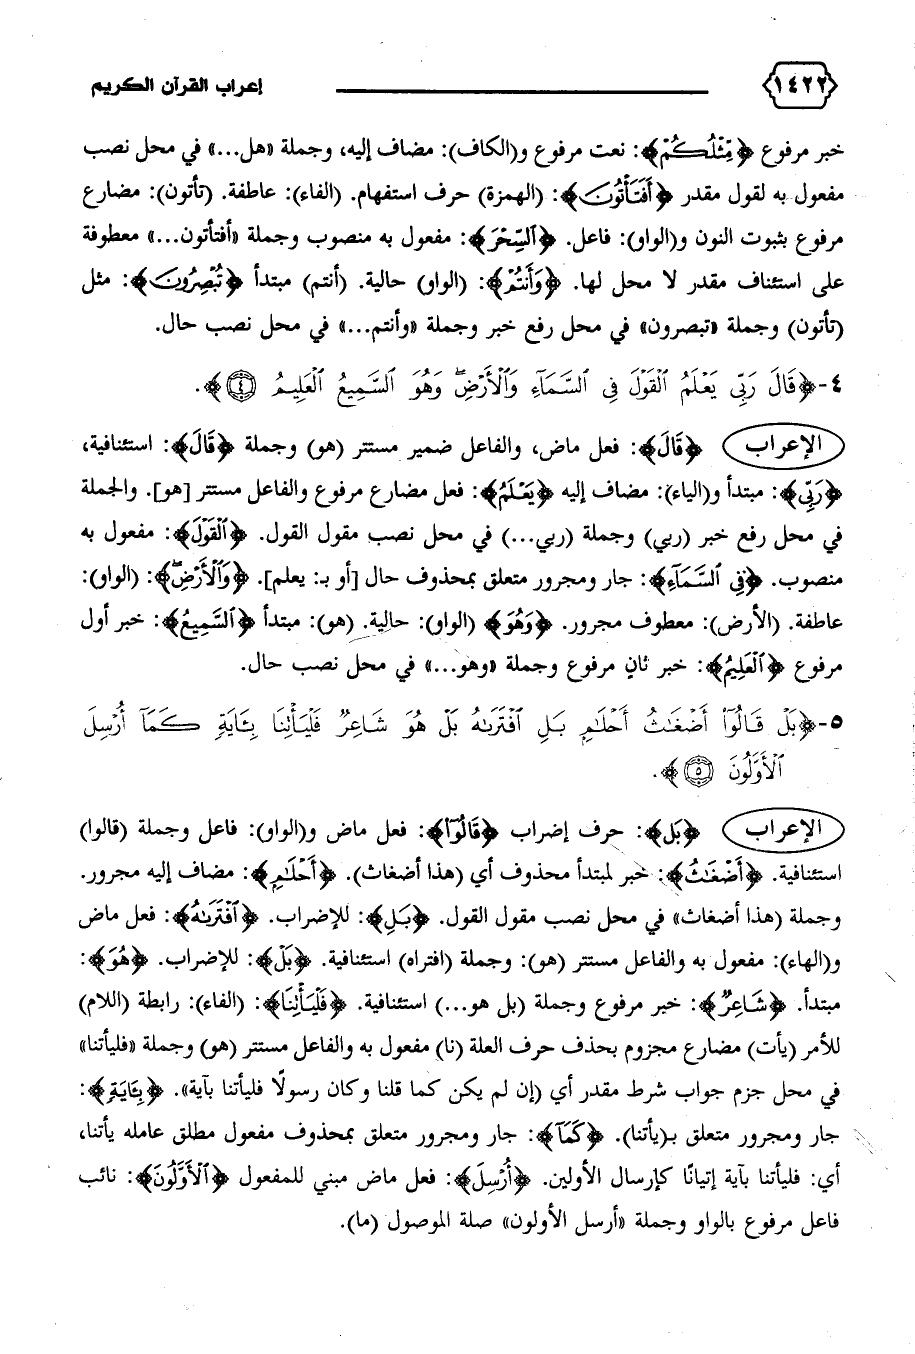 ١٤٢٢ إعراب القرآن الكريم
خبر مرفوع ﴿مِّثْلُكُمْ﴾: نعت مرفوع و(الكاف): مضاف إليه، وجملة «هل...» في محل نصب
مفعول به لقول مقدر ﴿أَفَتَأْتُونَ﴾: (الهمزة) حرف استفهام. (الفاء): عاطفة. (تأتون): مضارع
مرفوع بثبوت النون و(الواو): فاعل. ﴿ٱلسِّحْرَ﴾: مفعول به منصوب وجملة «أفتأتون...» معطوفة
على استئناف مقدر لا محل لها. ﴿وَأَنتُمْ﴾: (الواو) حالية. (أنتم) مبتدأ ﴿تُبْصِرُونَ﴾: مثل
(تأتون) وجملة «تبصرون» في محل رفع خبر وجملة «وأنتم...» في محل نصب حال.
٤-﴿قَالَ رَبِّى يَعْلَمُ ٱلْقَوْلَ فِى ٱلسَّمَآءِ وَٱلْأَرْضِۖ وَهُوَ ٱلسَّمِيعُ ٱلْعَلِيمُ ٤﴾.
الإعراب ﴿قَالَ﴾: فعل ماض، والفاعل ضمير مستتر (هو) وجملة ﴿قَالَ﴾: استئنافية،
﴿رَبِّى﴾: مبتدأ و(الياء): مضاف إليه ﴿يَعْلَمُ﴾: فعل مضارع مرفوع والفاعل مستتر [هو]. والجملة
في محل رفع خبر (ربي) وجملة (ربي...) في محل نصب مقول القول. ﴿ٱلْقَوْلَ﴾: مفعول به
منصوب. ﴿فِى ٱلسَّمَآءِ﴾: جار ومجرور متعلق بمحذوف حال [أو بـ: يعلم]. ﴿وَٱلْأَرْضِۖ﴾: (الواو):
عاطفة. (الأرض): معطوف مجرور. ﴿وَهُوَ﴾ (الواو): حالية. (هو): مبتدأ ﴿ٱلسَّمِيعُ﴾: خبر أول
مرفوع ﴿ٱلْعَلِيمُ﴾: خبر ثانٍ مرفوع وجملة «وهو...» في محل نصب حال.
٥-﴿بَلْ قَالُوٓا۟ أَضْغَٰثُ أَحْلَٰمٍۭ بَلِ ٱفْتَرَىٰهُ بَلْ هُوَ شَاعِرٌ فَلْيَأْتِنَا بِـَٔايَةٍ كَمَآ أُرْسِلَ
ٱلْأَوَّلُونَ ٥﴾.
الإعراب ﴿بَلْ﴾: حرف إضراب ﴿قَالُوٓا۟﴾: فعل ماض و(الواو): فاعل وجملة (قالوا)
استئنافية. ﴿أَضْغَٰثُ﴾: خبر لمبتدأ محذوف أي (هذا أضغاث). ﴿أَحْلَٰمٍۭ﴾: مضاف إليه مجرور.
وجملة (هذا أضغاث» في محل نصب مقول القول. ﴿بَلِ﴾: للإضراب. ﴿ٱفْتَرَىٰهُ﴾: فعل ماض
و(الهاء): مفعول به والفاعل مستتر (هو): وجملة (افتراه) استئنافية. ﴿بَلْ﴾: للإضراب. ﴿هُوَ﴾:
مبتدأ. ﴿شَاعِرٌ﴾: خبر مرفوع وجملة (بل هو...) استئنافية. ﴿فَلْيَأْتِنَا﴾: (الفاء): رابطة (اللام)
للأمر (يأت) مضارع مجزوم بحذف حرف العلة (نا) مفعول به والفاعل مستتر (هو) وجملة «فليأتنا»
في محل جزم جواب شرط مقدر أي (إن لم يكن كما قلنا وكان رسولًا فليأتنا بآية». ﴿بِـَٔايَةٍ﴾:
جار ومجرور متعلق بـ(يأتنا). ﴿كَمَآ﴾: جار ومجرور متعلق بمحذوف مفعول مطلق عامله يأتنا،
أي: فليأتنا بآية إتيانًا كإرسال الأولين. ﴿أُرْسِلَ﴾: فعل ماض مبني للمفعول ﴿ٱلْأَوَّلُونَ﴾: نائب
فاعل مرفوع بالواو وجملة «أرسل الأولون» صلة الموصول (ما).